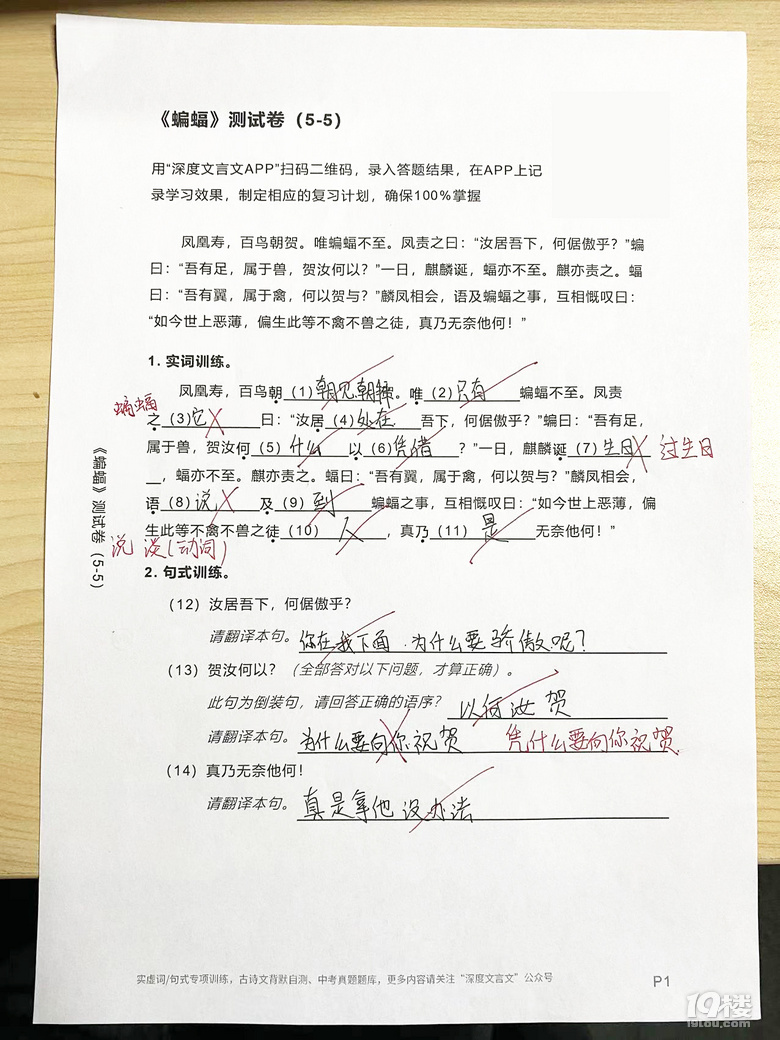 《蝙蝠》测试卷（5-5）
用“深度文言文APP”扫码二维码，录入答题结果，在APP上记
录学习效果，制定相应的复习计划，确保100%掌握
凤凰寿，百鸟朝贺。唯蝙蝠不至。凤责之曰：“汝居吾下，何倨傲乎？”蝙
曰：“吾有足，属于兽，贺汝何以？”一日，麒麟诞，蝠亦不至。麒亦责之。蝠
曰：“吾有翼，属于禽，何以贺与？”麟凤相会，语及蝙蝠之事，互相慨叹曰：
“如今世上恶薄，偏生此等不禽不兽之徒，真乃无奈他何！”
1. 实词训练。
凤凰寿，百鸟朝（1）朝见.朝拜贺。唯（2）只有蝙蝠不至。凤责
蝙蝠
之（3）它曰：“汝居（4）处在吾下，何倨傲乎？”蝙曰：“吾有足，
属于兽，贺汝何（5）什么以（6）凭借？”一日，麒麟诞（7）生日 过生日
，蝠亦不至。麒亦责之。蝠曰：“吾有翼，属于禽，何以贺与？”麟凤相会，
语（8）说及（9）到蝙蝠之事，互相慨叹曰：“如今世上恶薄，偏
生此等不禽不兽之徒（10）人，真乃（11）是无奈他何！”
说 谈(动词)
《蝙蝠》测试卷（5-5）
2. 句式训练。
（12）汝居吾下，何倨傲乎？
请翻译本句。你在我下面.为什么要骄傲呢?
（13）贺汝何以？（全部答对以下问题，才算正确）。
此句为倒装句，请回答正确的语序？以何汝贺
请翻译本句。为什么要向你祝贺 凭什么要向你祝贺
（14）真乃无奈他何！
请翻译本句。真是拿他没办法
实虚词/句式专项训练，古诗文背默自测、中考真题题库，更多内容请关注“深度文言文”公众号
P1
19楼
19lou.com